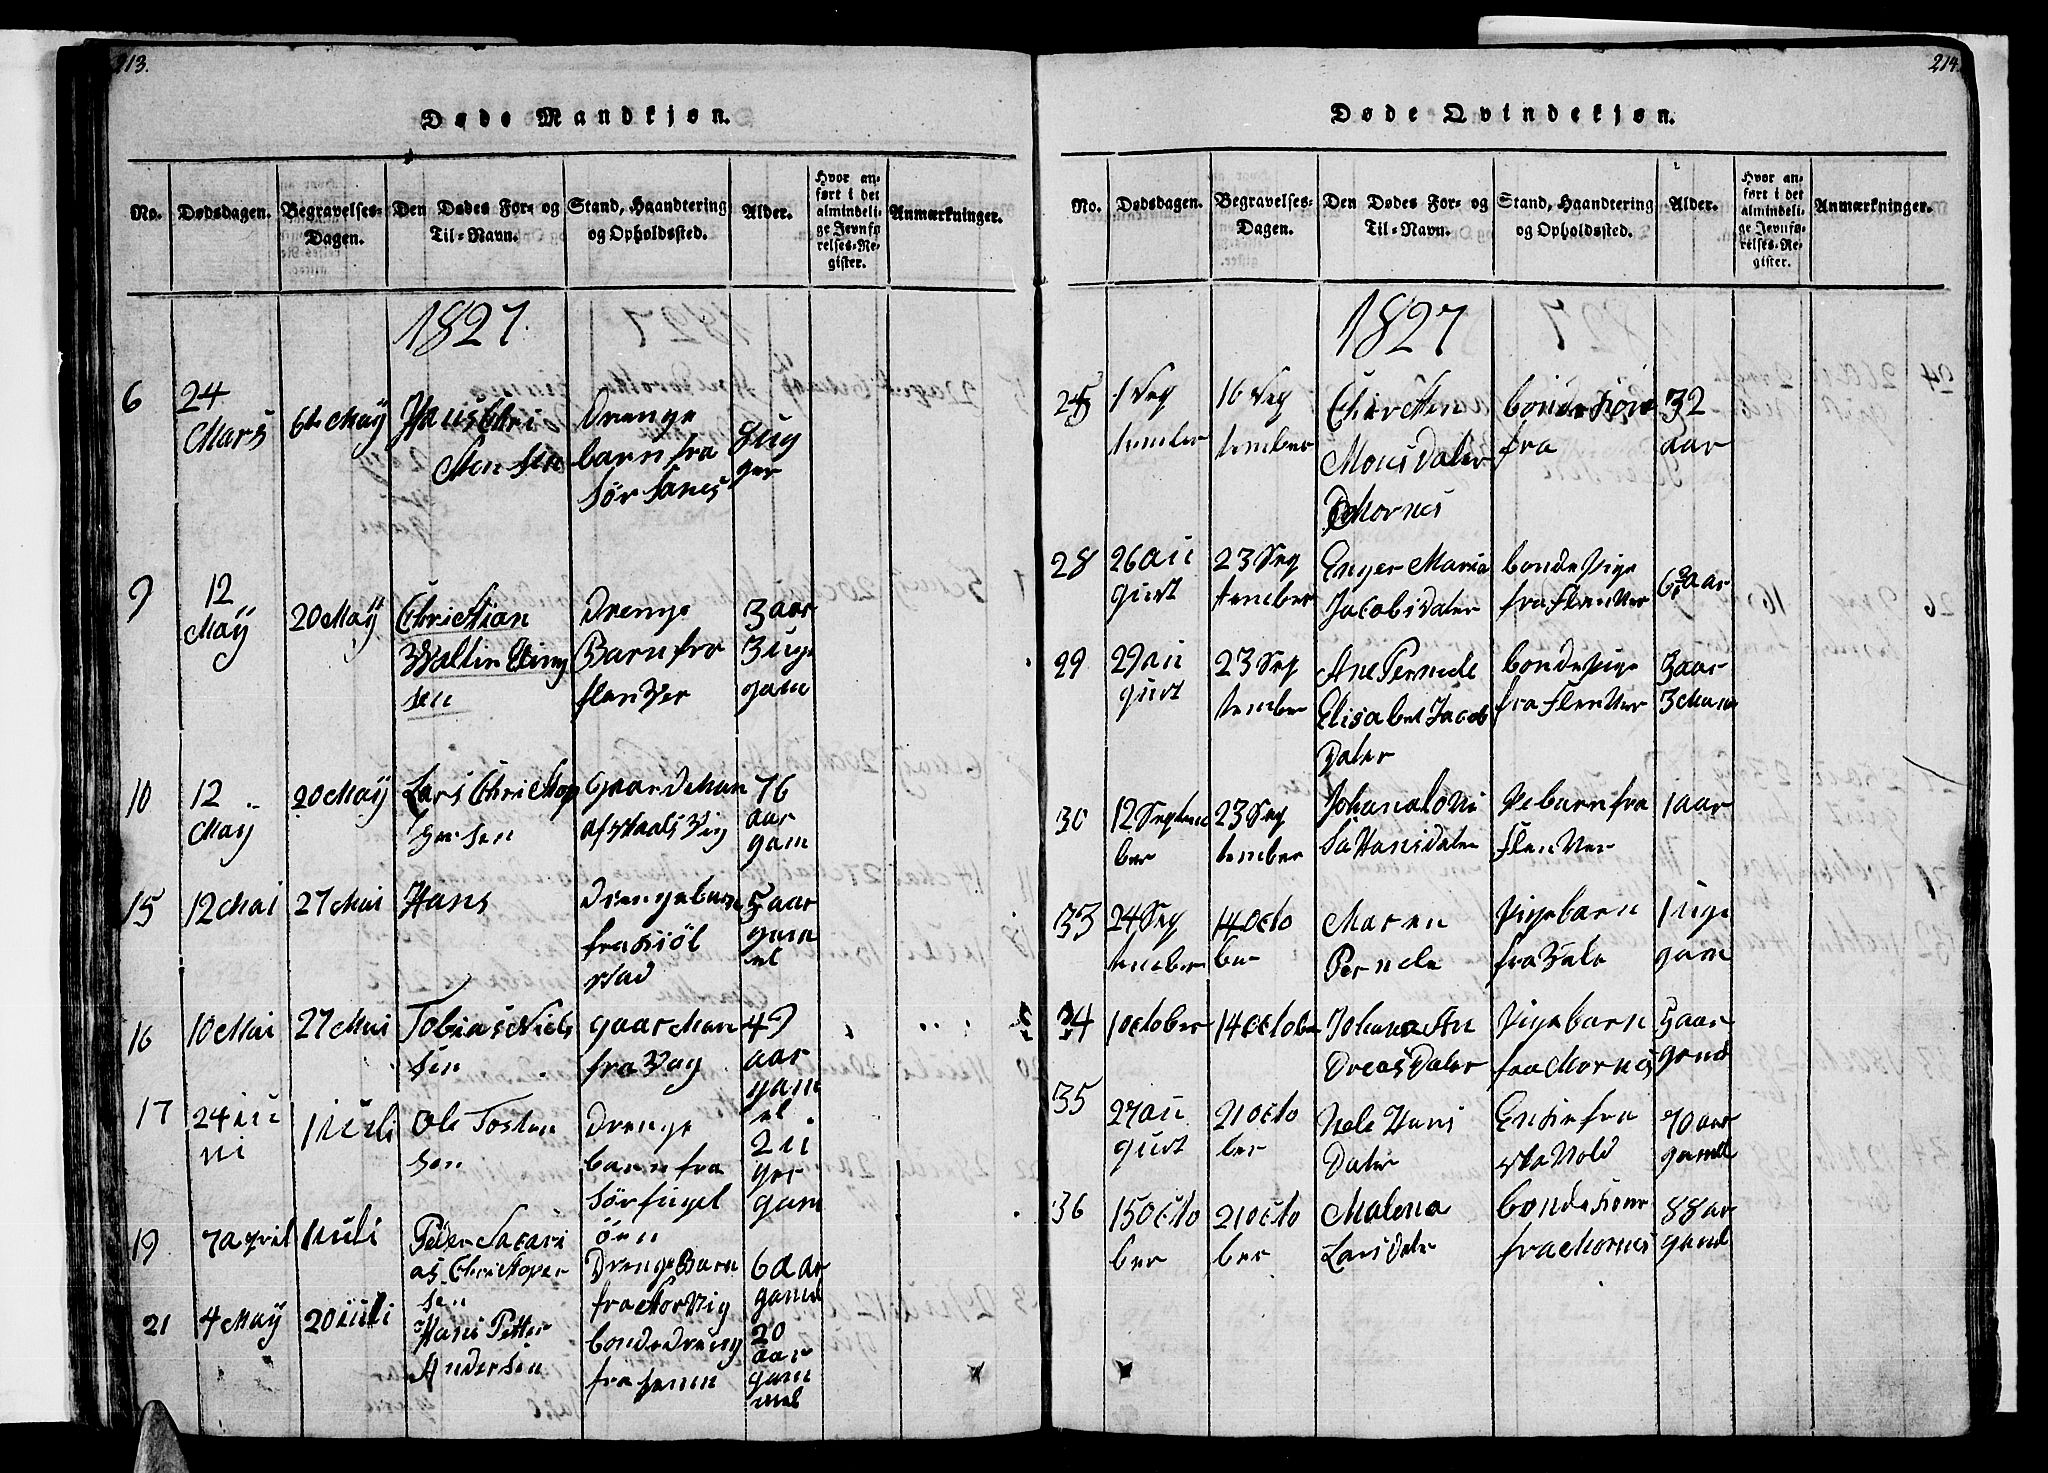 213.
Døde Mandkjøn.
No.
Dødsdagen.
Begravelses-
Dagen.
Den Dødes For- og
Til-Navn.
Stand, Haandtering
og Opholdssted.
Alder.
Hvor an-
ført i det
almindeli-
ge Jevnfø-
relses-Re-
gister.
Anmærkninger.
1827.
6
24
Mars
6te May
Hans Chri
sten sen
Drenge
barn fra
Sør Sanes
8 ug
ger
9
12
May
20 May
Christian
sen
Drenge
Barn fra
flenVer
3 aar
3 uge
gam
10
12
May
20 May
Lars Christop
hersen
Gaardsman
af Staals Vig
76
aar
gam
15
12 Mai
27 Mai
Hans
Drengebarn
fra Kiøl
stad
5 aar
gam
el
16
10 Mai
27 Mai
Tobias Niels
sen
gaarman
fra Vag
49
aar
gam
el
17
24 iu
ni
1 iuli
Ole Tosten
sen
Drenge
barn fra
Sørfugel
øen
2 ü
ger
gam
19
7 april
1 iuli
Peder Sacari
as Christoper
sen
Drenge Barn
fra MorVig
6 aar
gamel
21
4 May
20 iuli
Hans Petter
Andersen
bondedreng
fra
20
aar
gam
mel
214.
Døde Qvindekjøn.
No.
Dødsdagen.
Begravelses-
Dagen.
Den Dødes For- og
Til-Navn.
Stand, Haandtering
og Opholdssted.
Alder.
Hvor an-
ført i det
almindeli-
ge Jevnfø-
relses-Re-
gister.
Anmærkninger.
1827
25
1 Sep
tember
16 Sep
tember
Chirsten
Mons Dater
Mornes
bonde kone
fra
32
aar
28
26 au
gust
23 Sep
tember
Enger Maria
Jacobs Dater
bonde Pige
fra FlenVer
6 aar
29
29 au
gust
23 Sep
tember
Ane Pernele
Elisabet Jacob
Dater
bonde Pige
fra FlenVer
3 aar
3 Man
30
12 Septem
ber
23 Sep
tember
Johana loVi
sa Hans dater
Pebarn fra
FlenVer
1 aar
33
24 Sep
tember
14 Octo
ber
Maren
Pernele
Pigebarn
fra Vale
1 uge
gam
34
1 October
14 October
Johana An
Dreas Dater
Pigebarn
fra Mornes
5 aar
gamel
35
27 au
gust
21 Octo
ber
Nele Hans
Dater
Enke fra
staVold
70 aar
gamel
36
15 Octo
ber
21 Octo
ber
Malena
Lars Dater
bonde kone
fra Mornes
88 ar
gamel